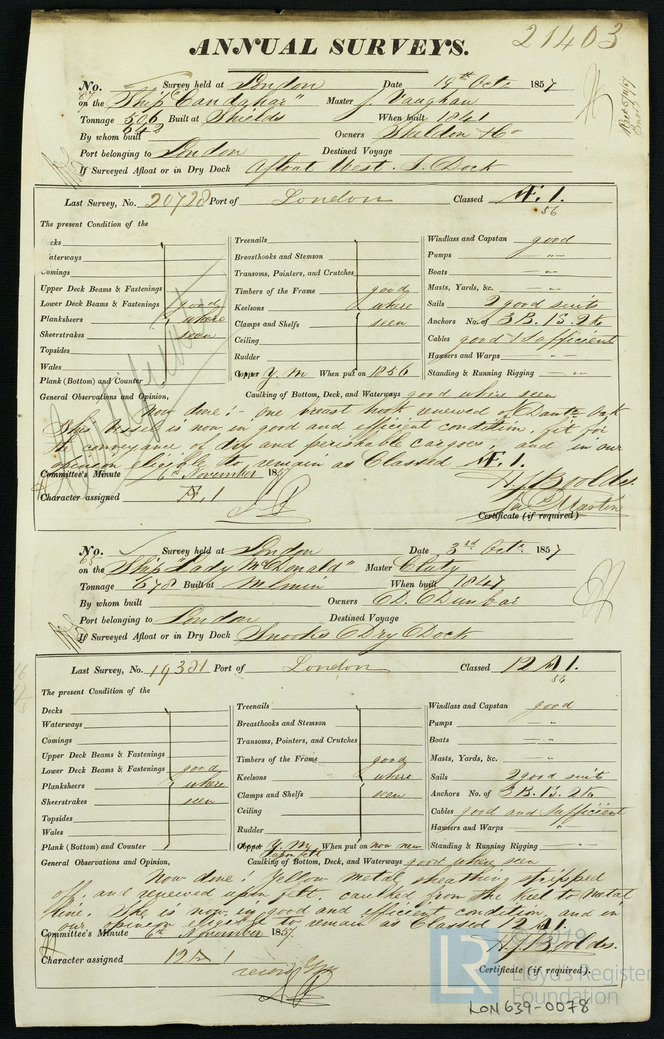 21403
ANNUAL SURVEYS.
No. 67 Survey held at London Date 19th Octr 1857
on the Ship "Candahar" Master J. Vaughan
Tonnage 506 642 Built at Shields When built 1841
By whom built Owners Sheldon & Co
Port belonging to London Destined Voyage
If Surveyed Afloat or in Dry Dock Afloat West. I. Dock
Last Survey, No. 20728 Port of London Classed Æ. 1. 56
The present Condition of the
Decks Treenails Windlass and Capstan good
Waterways Breasthooks and Stemson Pumps "
Comings Transoms, Pointers, and Crutches Boats "
Upper Deck Beams & Fastenings Timbers of the Frame good Masts, Yards, &c. "
Lower Deck Beams & Fastenings good Keelsons where Sails 2 good suits
Planksheers where Clamps and Shelfs seen Anchors No. of 3 B. 1 S. 2 K
Sheerstrakes seen Ceiling Cables good & sufficient
Topsides Rudder Hawsers and Warps "
Wales Copper Y. M When put on 1856 Standing & Running Rigging "
Plank (Bottom) and Counter
General Observations and Opinion, Caulking of Bottom, Deck, and Waterways good where seen
Now done :- One breast hook renewed of Dantz. oak
This vessel is now in good and efficient condition, fit for
the conveyance of dry and perishable cargoes, and in our
opinion eligible to remain as Classed Æ. 1.
Committee's Minute 6th November 1857
Character assigned Æ 1
Martin
Certificate (if required)
No. 68 Survey held at London Date 3rd Octr 1857
on the Ship "Lady McDonald" Master
Tonnage 678 Built at When built 1847
By whom built Owners D. Dunbar
Port belonging to London Destined Voyage
If Surveyed Afloat or in Dry Dock Snooks Dry Dock
Last Survey, No. 19381 Port of London Classed 12 A 1. 54
The present Condition of the
Decks Treenails Windlass and Capstan good
Waterways Breasthooks and Stemson Pumps "
Comings Transoms, Pointers, and Crutches Boats "
Upper Deck Beams & Fastenings Timbers of the Frame good Masts, Yards, &c. "
Lower Deck Beams & Fastenings good Keelsons where Sails 2 good suits
Planksheers where Clamps and Shelfs seen Anchors No. of 3 B. 1 S. 2 K
Sheerstrakes seen Ceiling Cables good and sufficient
Topsides Rudder Hawsers and Warps "
Wales Copper Y. M upon felt When put on now new Standing & Running Rigging "
Plank (Bottom) and Counter
General Observations and Opinion, Caulking of Bottom, Deck, and Waterways good where seen
Now done : Yellow metal sheathing stripped
off, and renewed upon felt, caulked from the keel to metal
line. She is now in good and efficient condition, and in
our opinion eligible to remain as Classed 12 A1.
Committee's Minute 6th November 1857
Character assigned 12 A 1
Certificate (if required).
LR © 2019
Lloyd's Register
Foundation
LON639-0078